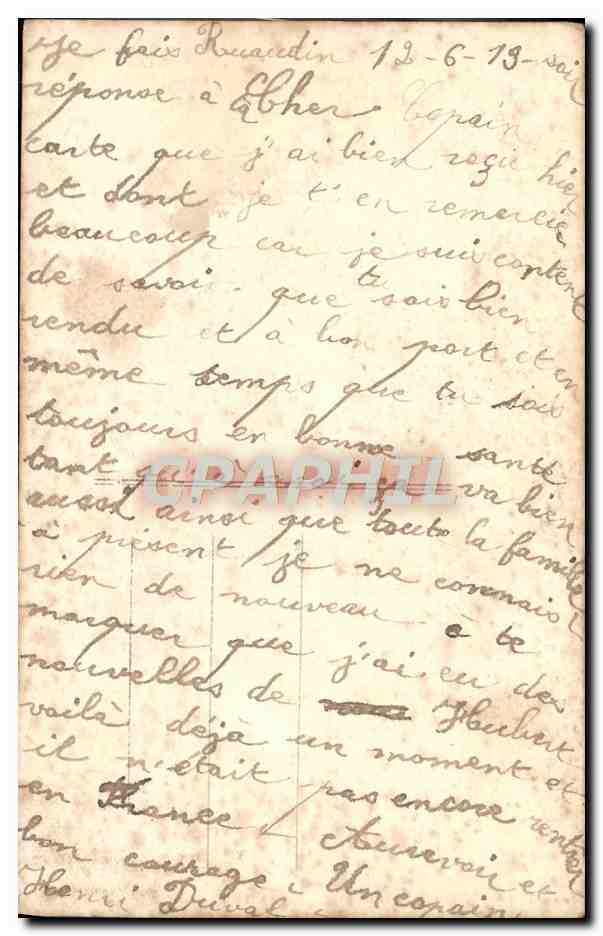 Je fais Ruaudin 12-6-19 soir
réponse à Cher Copain
carte que j'ai bien reçu hier
et dont je t'en remercie
beaucoup car je suis content
de savoir que tu sois bien
rendu et à bon port et en
même temps que tu sois
toujours en bonne santé
tant qu'à ça va bien
CPAPHIL
aussi ainsi que toute la famille
à présent je ne connais
rien de nouveau à te
marquer que j'ai eu des
nouvelles de Hubert
voilà déjà un moment et
il n'était pas encore rentrer
en France - Aurevoir et
bon courage. Un copain.
Henri Duval.